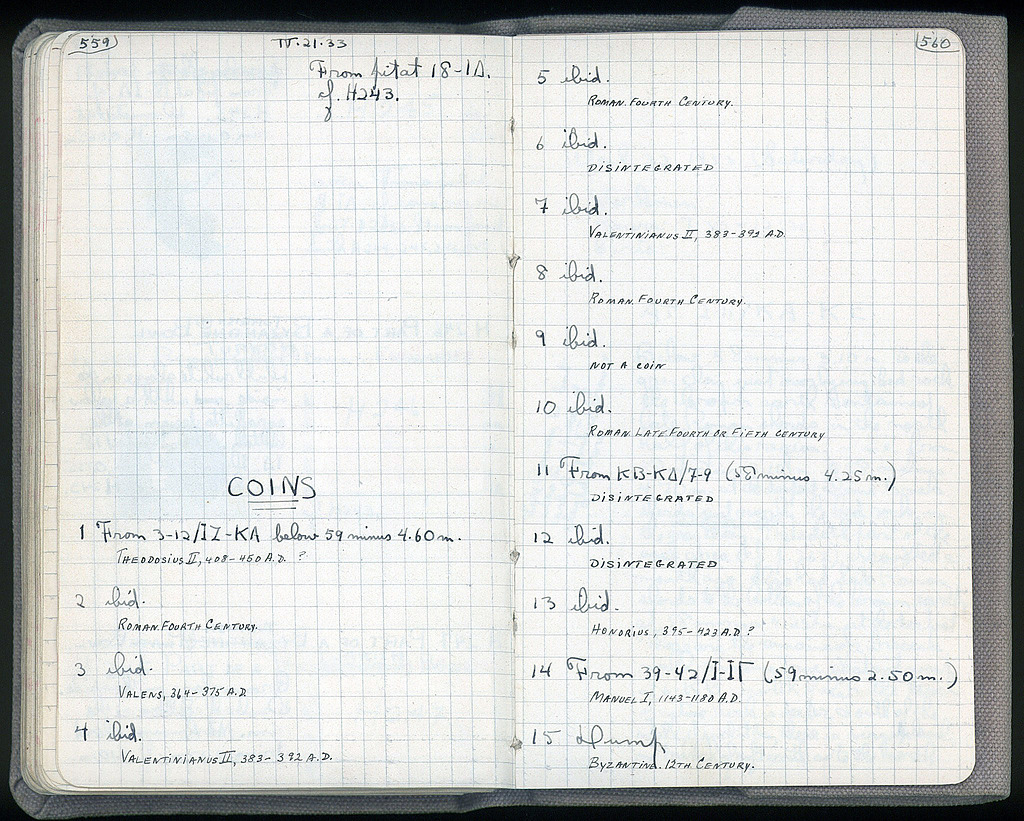 559
IV·21·33
From pit at 18-1Δ.
cf. H243.
COINS
1 From 3-12/IZ-KA below 59 minus 4.60 m.
THEODOSIUS II, 408-450 A.D. ?
2 ibid.
ROMAN. FOURTH CENTURY.
3 ibid.
VALENS, 364-375 A.D.
4 ibid.
VALENTINIANUS II, 383-392 A.D.
560
5 ibid.
ROMAN. FOURTH CENTURY.
6 ibid.
DISINTEGRATED
7 ibid.
VALENTINIANUS II, 383-392 A.D.
8 ibid.
ROMAN. FOURTH CENTURY.
9 ibid.
NOT A COIN
10 ibid.
ROMAN. LATE FOURTH OR FIFTH CENTURY
11 From KB-KΔ/7-9 (58 minus 4.25 m.)
DISINTEGRATED
12 ibid.
DISINTEGRATED
13 ibid.
HONORIUS, 395-423 A.D. ?
14 From 39-42/I-IΓ (59 minus 2.50 m.)
MANUEL I, 1143-1180 A.D.
15 Dump
BYZANTINE. 12TH CENTURY.